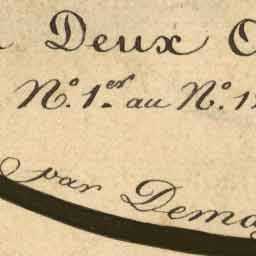 Deux
N.º 1.er au N.º 1
par Dema